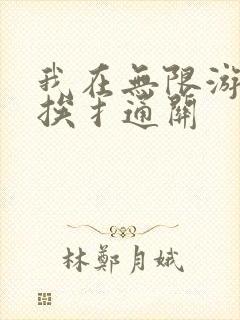 我在無限游
挨扌通關
林鄭月娥